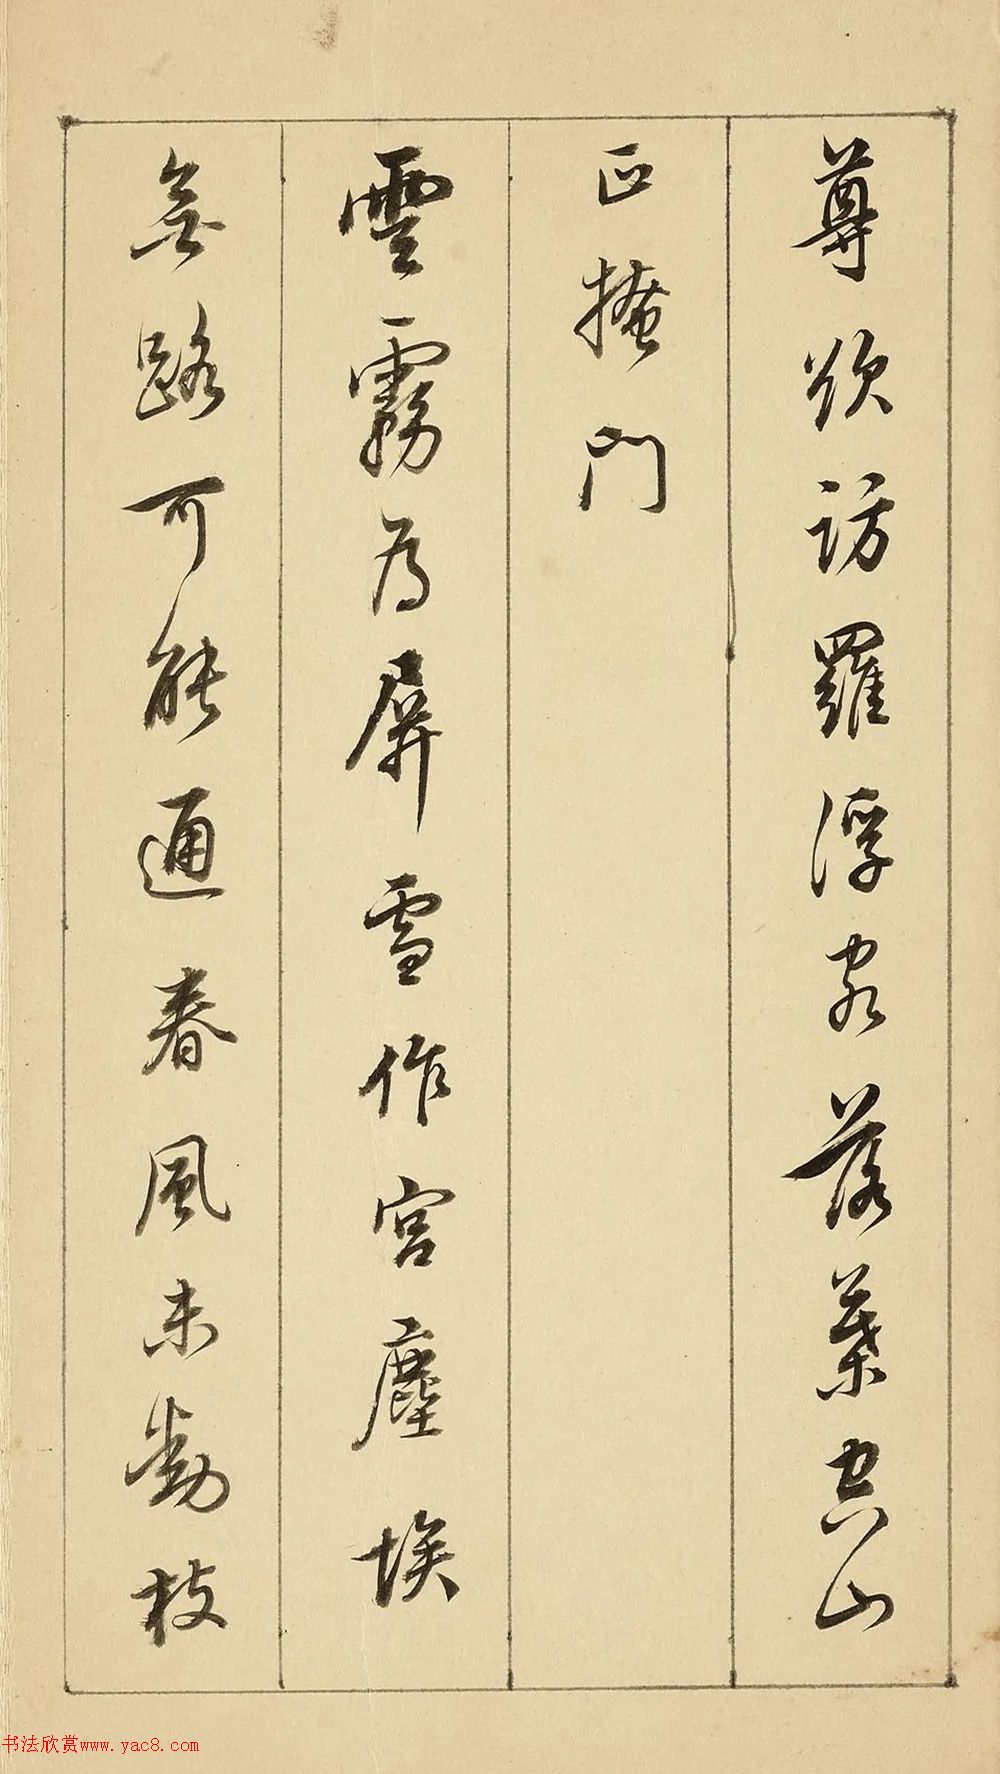 尊欲訪羅浮客落葉空山
正掩門
雲霧為屏雪作宮塵埃
無路可能通春風未動枝
书法欣赏www.yac8.com